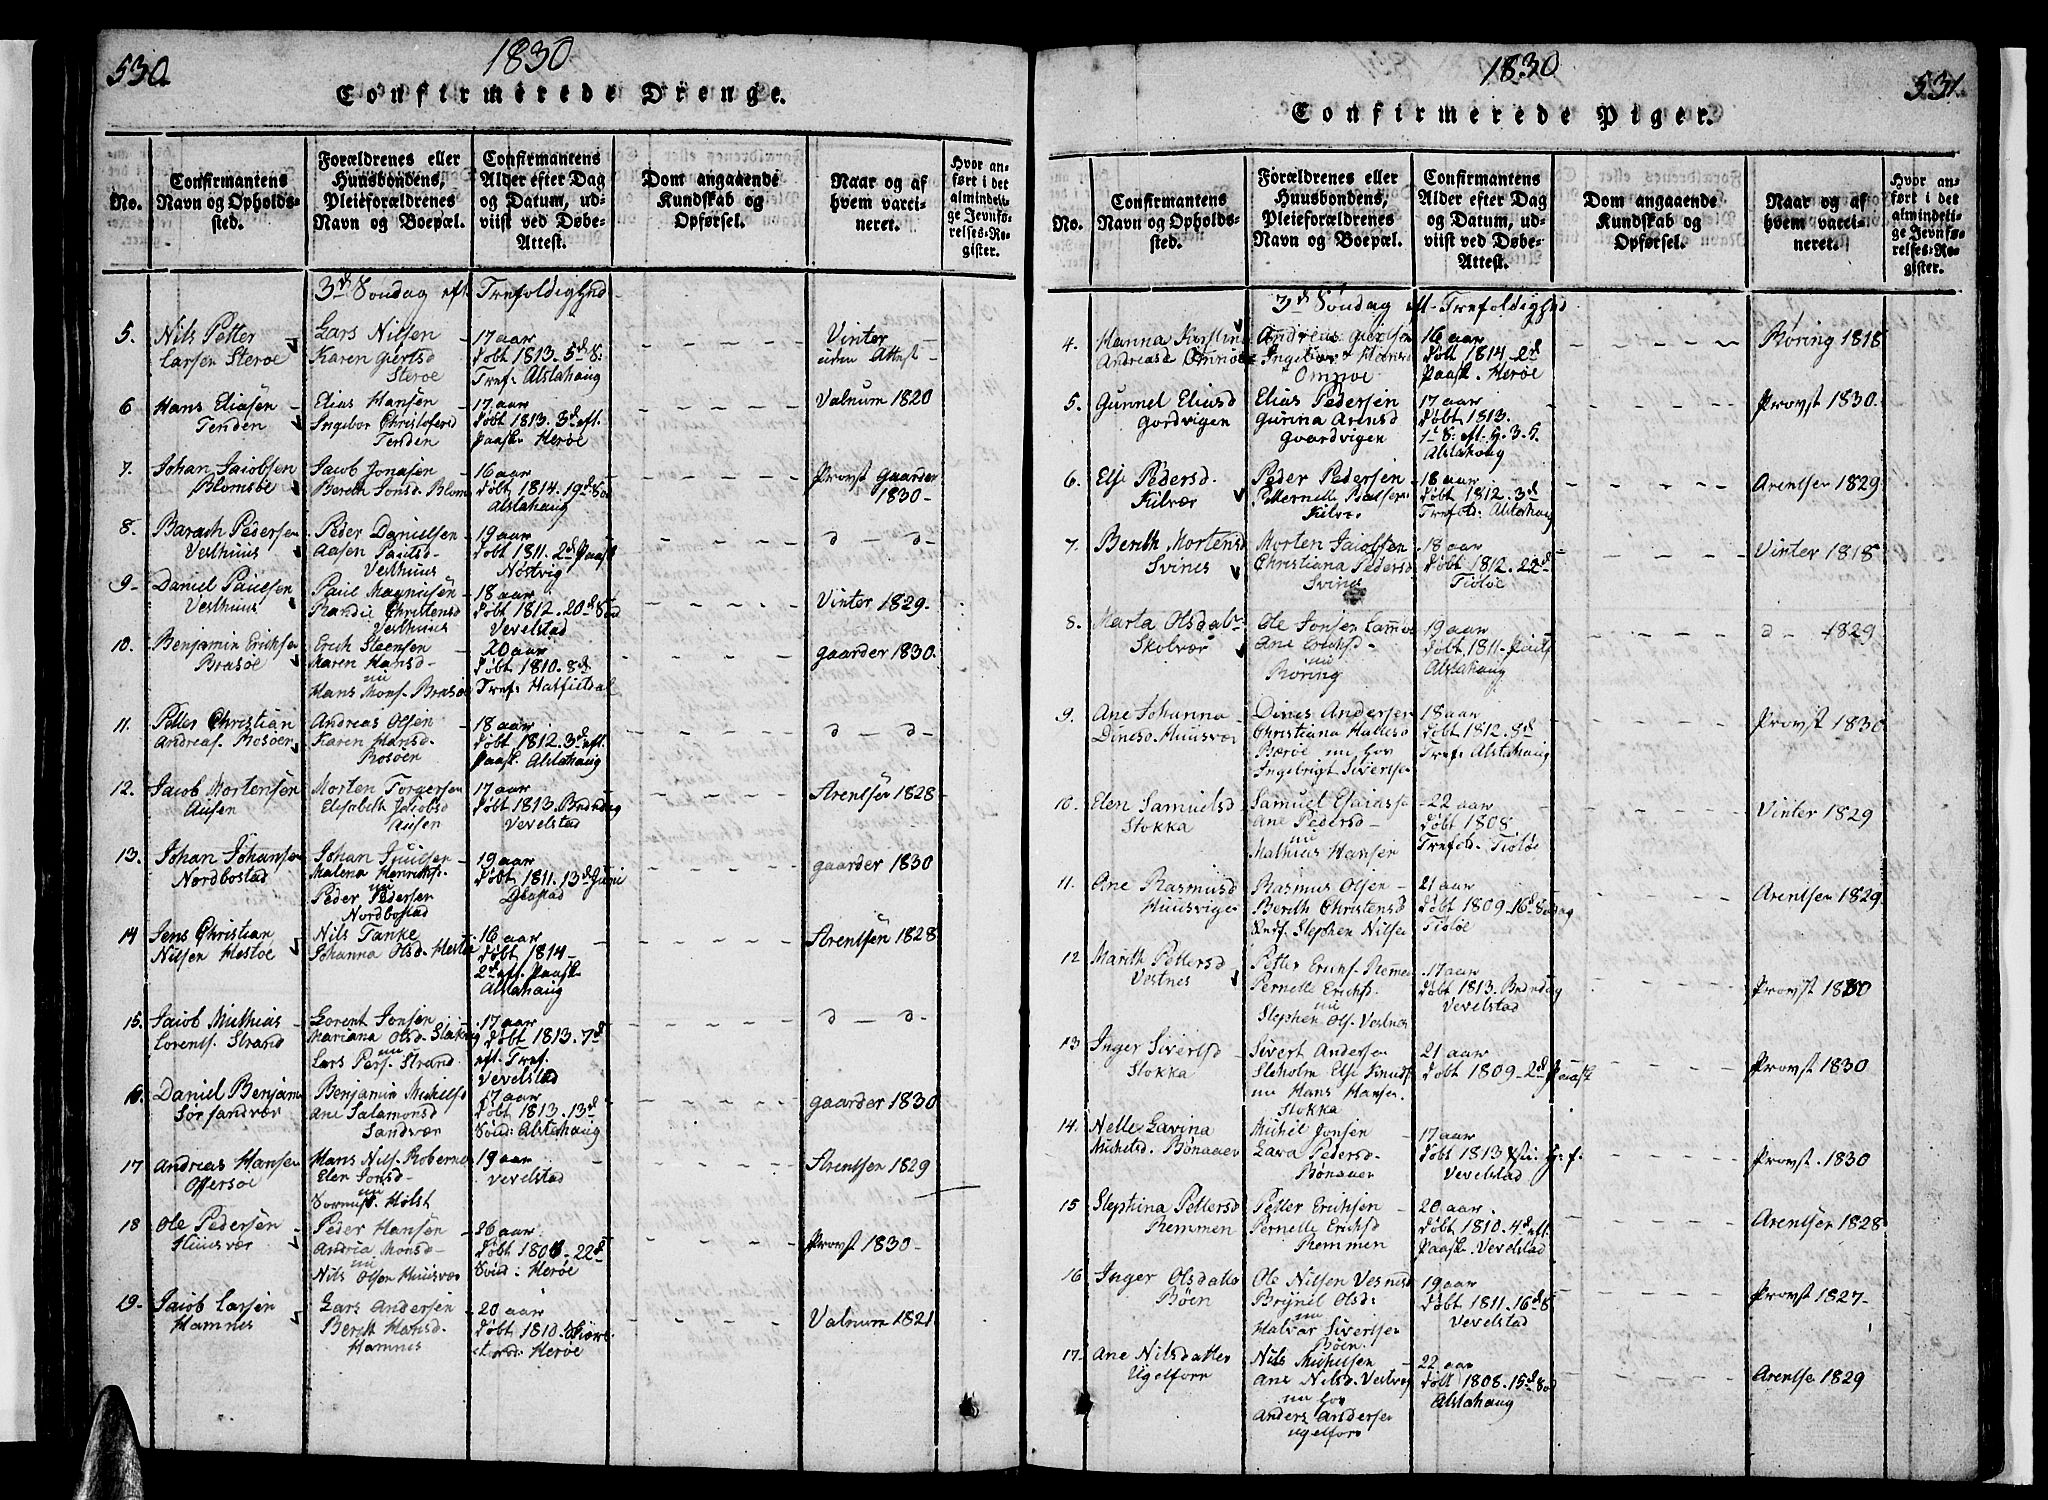 530.
1830
Confirmerede Drenge.
No.
Confirmantens
Navn og Opholds-
sted.
Forældrenes eller
Huusbondens,
Pleieforældrenes
Navn og Boepæl.
Confirmantens
Alder efter Dag
og Datum, ud-
viist ved Døbe-
Attest.
Dom angaaende
Kundskab og
Opførsel.
Naar og af
hvem vacci-
neret.
Hvor an-
ført i det
almindeli-
ge Jevnfø-
relses-Re-
gister.
3d Søndag eft. Trefoldighed
5. Nils Petter
Larsen Sterøe
Lars Nilsen
Karen Giertsd
Sterøe
17 aar
døbt 1813. 5d S.
Tref: Alstahaug
Vinter
uden Attest
6 Hans Eliasen
Tenden
Elias Hansen
Ingebor Christofersd
Tenden
17 aar
døbt 1813. 3d eft.
Paask. Herøe
Valnum 1820
7. Johan Jacobsen
Blomsøe
Jacob Jonasen
Bereth Jonsd. Bloms
16 aar
døbt 1814. 19d Sø
Alstahaug
Provst Gaarder
1830
8. Barach Pedersen
Vesthuus
Peder Danielsen
Aasen Paulsd.
Vesthuus
19 aar
døbt 1811. 2d Paask
Nøstvig
d - d
9 Daniel Paulsen
Vesthuus
Paul Magnusen
Randie Christensd
Vesthuus
18 aar
døbt 1812. 20d Sød
Vevelstad
Vinter 1829.
10. Benjamin Erichsen
Brasøe
Erich Steensen
Karen Hansd.
nu
Hans Mons. Brasøe
20 aar
døbt 1810. 8d
Tref: Hatfieldal
gaarder 1830.
11. Petter Christian
Andreas. Rosøen
Andreas Olsen
Karen Hansd.
Rosøen
18 aar
døbt 1812. 3d eft.
Paask. Alstahaug
d - d
12. Jacob Mortensen
Ausen
Morten Torgersen
Elisabeth Jacobsd
Ausen
17 aar
døbt 1813.
Vevelstad
Arentsen 1828
13. Johan Johansen
Nordbostad
Johan Juulsen
Malena Henrichs.
nu
Peder Pedersen
Nordbostad
19 aar
døbt 1811. 13d Juni
gaarder 1830
14 Jens Christian
Nilsen Hestøe
Nils Tanke
Johanna Olsd. Hestøe
16 aar
døbt 1814
2d eft. Paask.
Alstahaug
Arentsen 1828
15. Jacob Mathias
Lorents. Strand
Lorent Jonsen
Mariana Olsd.
nu
Lars Pers. Strand
17 aar
døbt 1813. 7d
eft. Tref.
Vevelstad
d - d
16. Daniel Benjam
Sørsandvær
Benjamin Michelsd
Ane Salamonsd
Sandvær
17 aar
døbt 1813. 13d
Sønd: Alstahaug
gaarder 1830
17 Andreas Hansen
Offersøe
Hans Nils.
Elen Jonsd.
nu
Holst
19 aar
Vevelstad
Arentsen 1829
18 Ole Pedersen
Huusvær
Peder Hansen
Andria Monsd.
nu
Nils Olsen Huusvær
26 aar
22d
Sønd: Herøe
Provst 1830
19. Jacob Larsen
Hamnes
Lars Andersen
Bereth Hansd.
Hamnes
20 aar
døbt 1810.
Herøe
Valnum 1821
1830
531.
Confirmerede Piger.
No.
Confirmantens
Navn og Opholds-
sted.
Forældrenes eller
Huusbondens,
Pleieforældrenes
Navn og Boepæl.
Confirmantens
Alder efter Dag
og Datum, ud-
viist ved Døbe-
Attest.
Dom angaaende
Kundskab og
Opførsel.
Naar og af
hvem vacci-
neret.
Hvor an-
ført i det
almindeli-
ge Jevnfø-
relses-Re-
gister.
3d Søndag eft. Trefoldighed
4. Hanna Karstine
Andreasd Omnøe
Andreas
Ingebor Hansd
Omnøe
16 aar
døbt 1814. 2d
Paask. Herøe
Røring 1818
5. Gunnel Eliasd
Gordvigen
Elias Pedersen
Gurina Arensd
Gaardvigen
17 aar
døbt 1813.
1d S. eft. H. 3. K.
Alstahaug
Provst 1830.
6. Else Pedersd.
Kilvær
Peder Pedersen
Petternelle Paulsen
Kilvær
18 aar
døbt 1812. 3d
Trefold: Alstahaug
Arentsen 1829
7. Berith Mortensd
Svines
Morten Jacobsen
Christiana Pedersd
Svines
18 aar
døbt 1812. 22d
Tiøtøe
Vinter 1818
8. Marta Olsdatr
Skolvær
Ole Jonsen
Ane Erichsd.
nu
Røring
19 aar
døbt 1811.
Alstahaug
d - 1829
9. Ane Johanna
Dinesd. Huusvær
Dines Andersen
Christiana
Bærøe nu hos
Ingebrigt Sivertsen
18 aar
døbt 1812. 8d
Tref: Alstahaug
Provst 1830
10. Elen Samuelsd
Stokka
Samuel Esaiasse
Ane Pedersd.
nu
Mathias Hansen
22 aar
døbt 1808
Trefold. Tiøtøe
Vinter 1829
11. Ane Rasmusd
Huusvigen
Rasmus Olsen
Berith Christensd
Stephen Nilsen
21 aar
døbt 1809. 16d Søndag
Tiøtøe
Arentsen 1829
12 Marith Pettersd
Vestnes
Petter Erichs. Remmen
Pernelle Erichsd.
nu
Stephen Ols. Vestnes
17 aar
døbt 1813.
Vevelstad
Provst 1830
13 Inger Sivertsd
Stokka
Sivert Andersen
Else Knuds
nu Hans Hansen
Stokka
21 aar
døbt 1809. 2d Paask
Provst 1830
14. Nelle Lavina
Michelsd. Bønaaen
Michel Jonsen
Lava Pedersd.
Bønaaen
17 aar
døbt 1813
Vevelstad
Provst. 1830
15 Stephina Pettersd
Remmen
Petter Erichsen
Pernelle Erichsd
Remmen
20 aar.
døbt 1810. 4d eft.
Paask. Vevelstad
Arentsen 1828
16 Inger Olsdatter
Bøen
Ole Nilsen Vesnes
Brynel Olsd:
nu
Halvar Sivertsen
Bøen
19 aar
døbt 1811. 16d S
Vevelstad
Provst 1827.
17. Ane Nilsdatter
Ugelforn
Nils Michelsen
Ane Nilsd.
nu hos
Anders Andersen
Ugelforn
22 aar
døbt 1808. 15d Sød
Alstahaug
Arentsen 1829